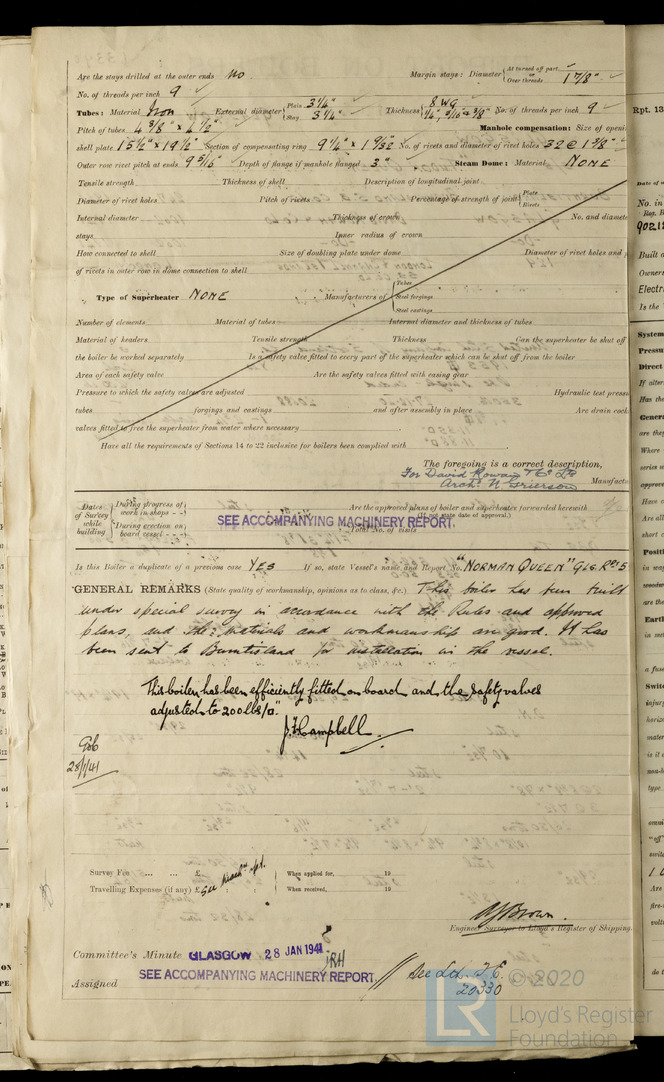 Are the stays drilled at the outer ends No Margin stays: Diameter { At turned off part, or Over threads 1 7/8"
No. of threads per inch 9
Tubes: Material Iron External diameter { Plain 3 1/4" Stay 3 1/4" Thickness { 8 WG 1/4", 5/16" & 3/8" No. of threads per inch 9
Pitch of tubes 4 5/8" x 4 1/2" Manhole compensation: Size of openi
shell plate 15 1/2" x 19 1/2" Section of compensating ring 9 1/4" x 1 9/32 No. of rivets and diameter of rivet holes 32 @ 1 3/8"
Outer row rivet pitch at ends 9 5/16" Depth of flange if manhole flanged 3" Steam Dome: Material NONE
Tensile strength Thickness of shell Description of longitudinal joint
Diameter of rivet holes Pitch of rivets Percentage of strength of joint { Plate Rivets
Internal diameter Thickness of crown No. and diamete
stays Inner radius of crown
How connected to shell Size of doubling plate under dome Diameter of rivet holes and p
of rivets in outer row in dome connection to shell
Type of Superheater NONE Manufacturers of { Tubes Steel forgings Steel castings
Number of elements Material of tubes Internal diameter and thickness of tubes
Material of headers Tensile strength Thickness Can the superheater be shut off
the boiler be worked separately Is a safety valve fitted to every part of the superheater which can be shut off from the boiler
Area of each safety valve Are the safety valves fitted with easing gear
Pressure to which the safety valves are adjusted Hydraulic test pressu
tubes forgings and castings and after assembly in place Are drain cock
valves fitted to free the superheater from water where necessary
Have all the requirements of Sections 14 to 22 inclusive for boilers been complied with
The foregoing is a correct description,
For David Rowan & Co Ltd
Archd. N Grierson Manufactu
Dates of Survey while building { During progress of work in shops - - During erection on board vessel - - -
Are the approved plans of boiler and superheater forwarded herewith
(If not state date of approval.)
SEE ACCOMPANYING MACHINERY REPORT.
Total No. of visits
Is this Boiler a duplicate of a previous case YES If so, state Vessel's name and Report No. "NORMAN QUEEN" Gls. Rpt 5
GENERAL REMARKS (State quality of workmanship, opinions as to class, &c.) This boiler has been built
under special survey in accordance with the Rules and approved
plans, and the materials and workmanship are good. It has
been sent to Burntisland for installation in the vessel.
This boiler has been efficiently fitted on board and the safety valves
adjusted to 200 lbs/□".
J F Campbell
28/1/41
Survey Fee ... ... £ : : When applied for, 19
Travelling Expenses (if any) £ See Mach. rpt. : : When received, 19
A J Brown.
Engineer Surveyor to Lloyd's Register of Shipping.
Committee's Minute GLASGOW 28 JAN 1941
JRH
SEE ACCOMPANYING MACHINERY REPORT.
Assigned
See Ldn. J.E.
20330
Rpt. 13
Date of w
No. in
Reg. B
9021
Built a
Owners
Electr
Is the
System
Pressu
Direct
If alter
Has the
Genera
are they
Where
series w
approve
Have c
Are all
short c
Positi
in wag
woodwo
are the
Earth
in cert
a fuse
Switc
injury
horizo
mater
is it o
non-h
type
omni
"off"
switc
Are
fire-r
volts
do t
© 2020
Lloyd's Register
Foundation
LR